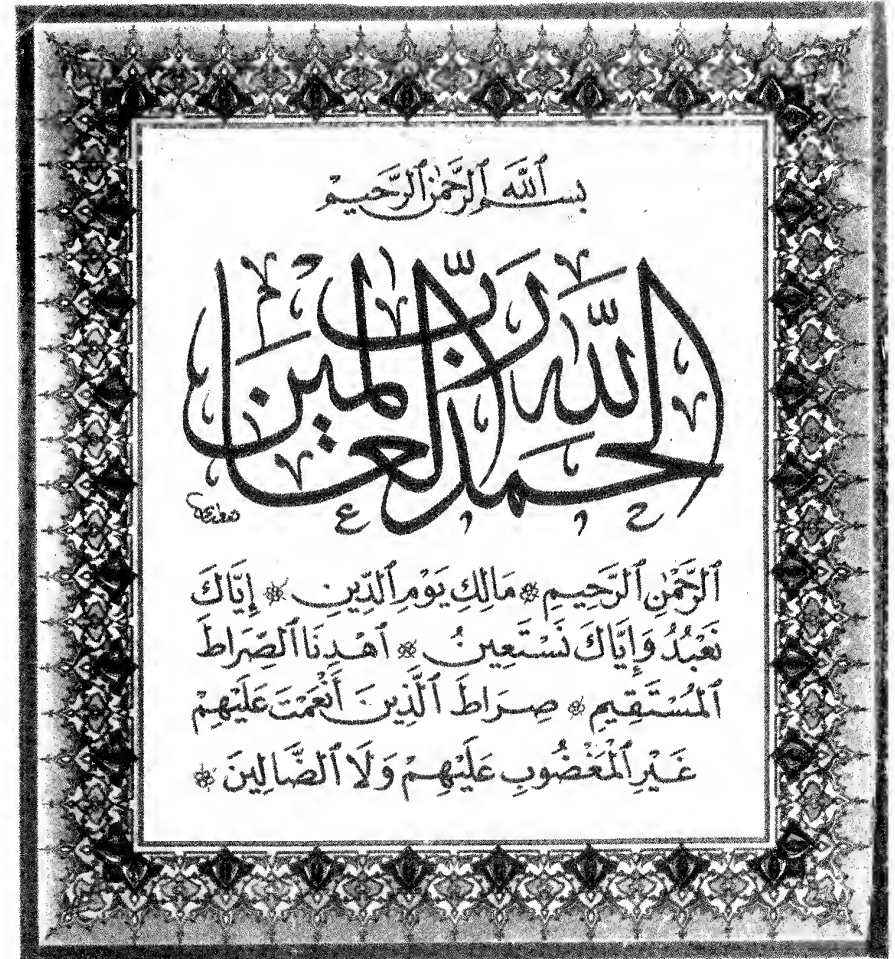 بِسْمِ ٱللَّهِ ٱلرَّحْمَٰنِ ٱلرَّحِيمْ
الحمد لله رب العالمين
ٱلرَّحْمَٰنِ ٱلرَّحِيمِ ۞ مَالِكِ يَوْمِ ٱلدِّينِ ۞ إِيَّاكَ
نَعْبُدُ وَإِيَّاكَ نَسْتَعِينُ ۞ ٱهْدِنَا ٱلصِّرَاطَ
ٱلْمُسْتَقِيمِ ۞ صِرَاطَ ٱلَّذِينَ أَنْعَمْتَ عَلَيْهِمْ
غَيْرِ ٱلْمَغْضُوبِ عَلَيْهِمْ وَلَا ٱلضَّالِينَ ۞